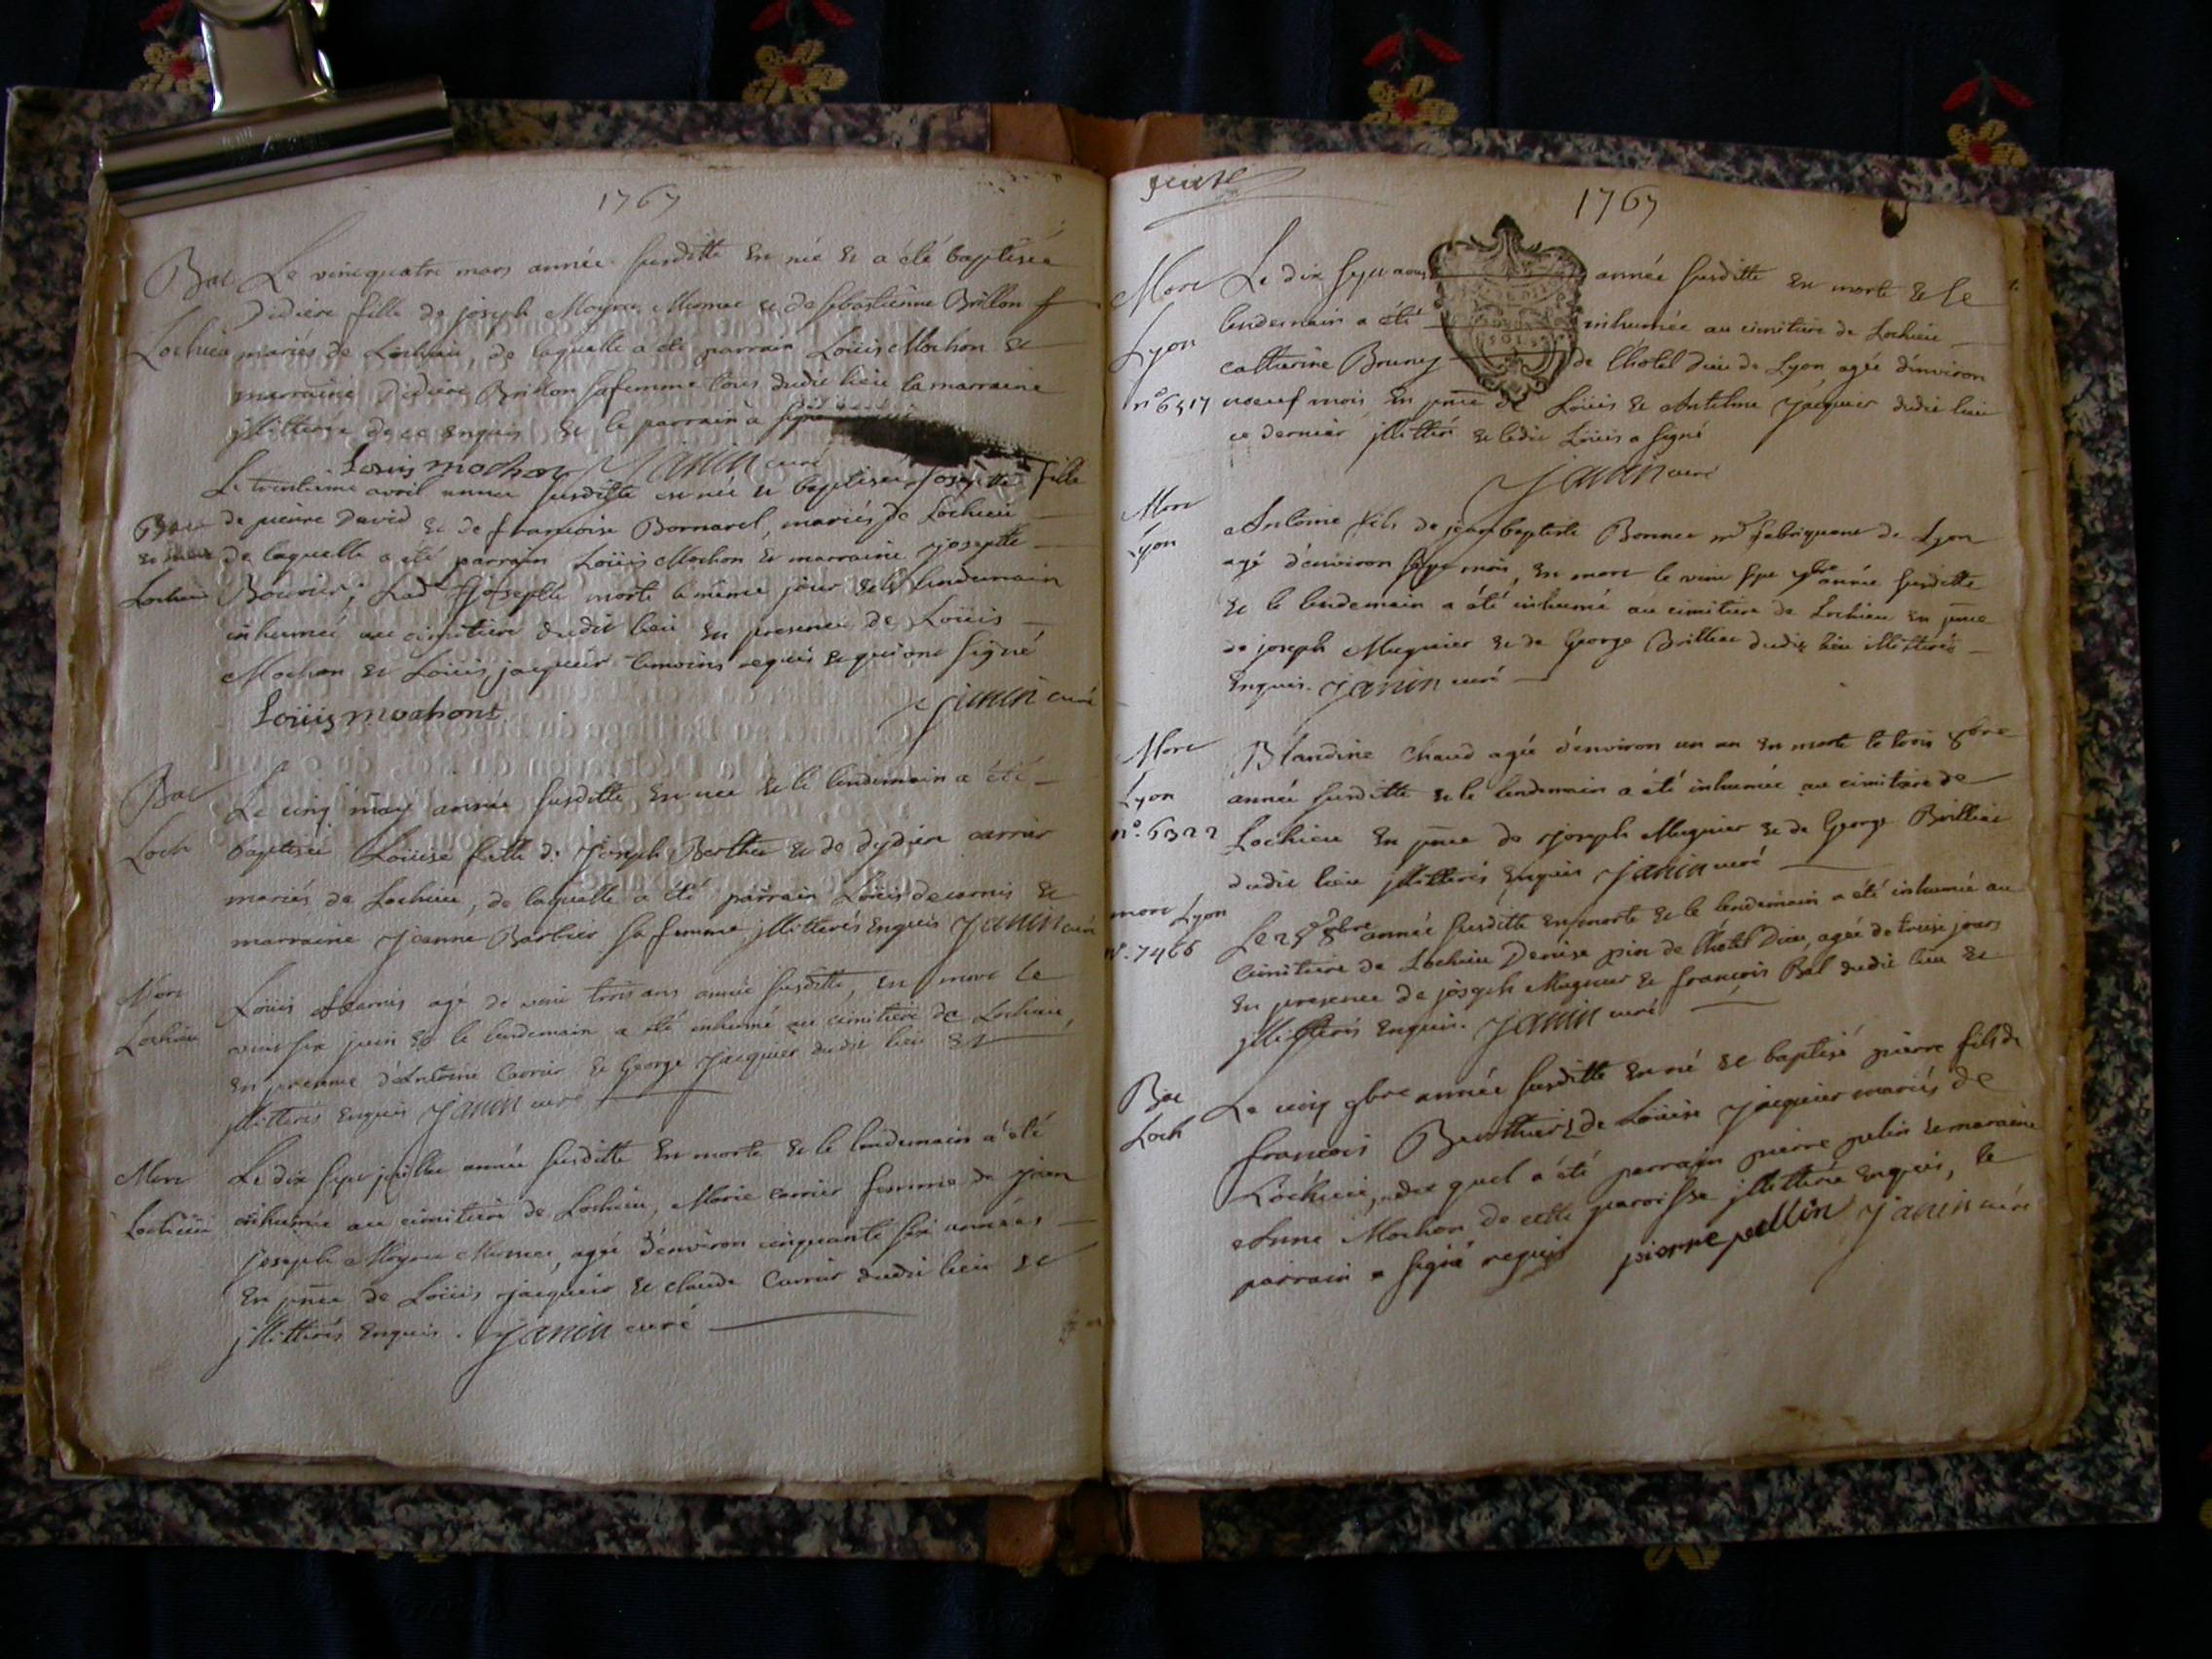 1767
Bat Le vint quatre mars année susditte est née et a été baptisée
Didière fille de joseph Moyne Monnet et de sebastienne Brillon
Lochieu mariés de Lochieu, de laquelle a été parrain Loüis Mochon et
marraine Didière Brillon sa femme tous dudit lieu la marraine
jllitterée de ce enquis et le parrain a signé
Louis mochon Janin curé
Le trentieme avril année susditte est née et baptisée josephte fille
Bat de pierre David et de francoise Bornarel, mariés de Lochieu
et mort de laquelle a été parrain Loüis Mochon et marraine josephte
Lochieu Bouvier; Lad. josephte morte le même jour et le lendemain
inhumée au cimitiere dudit lieu en presence de Loüis
Mochon et Loüis jacquier temoins requis et qui ont signé
Loüis mochont Janin curé
Bat Le cinq may année susditte est née et le lendemain a été
Loch baptisée Loüise fille de Joseph Berthet et de dydiere carrier
mariés de Lochieu, de laquelle a été parrain Loüis decornis et
marraine Jeanne Barbier sa femme jllitterés enquis Janin curé
Mort Loüis agé de vint trois ans année susditte, est mort le
Lochieu vint six juin et le lendemain a été inhumé au cimitiere de Lochieu,
en presence d'Antoine Carrier et George Jacquier dudit lieu et
jllitterés enquis Janin curé
Mort Le dix sept juillet année susditte est morte et le lendemain a été
Lochieu inhumée au cimitiere de Lochieu, Marie carrier femme de jean
joseph Moyne Monnet, agée d'environ cinquante six années
en pnce de Loüis jacquier et claude Carrier dudit lieu et
jllitterés enquis. Janin curé
1767
Mort Le dix sept aout année susditte est morte et le
Lyon lendemain a été inhumée au cimitiere de Lochieu
catherine Bruny de l'hotel Dieu de Lyon, agée d'environ
n° 6517 neuf mois en pnce de Loüis et Antelme jacquier dudit lieu
ce dernier jllitteré et ledit Loüis a signé
Janin curé
Mort
Lyon Antoine fils de jean baptiste Bonnet md fabriquant de Lyon
agé d'environ sept mois, est mort le vint sept 7bre année susditte
et le lendemain a été inhumé au cimitiere de Lochieu en pnce
de joseph Mugnier et de George Brilliat dudit lieu illitterés
enquis. Janin curé
Mort Blandine Chaud agée d'environ un an est morte le trois 8bre
Lyon année susditte et le lendemain a été inhumée au cimitiere de
n°. 6322 Lochieu en pnce de joseph Mugnier et de George Brilliat
dudit lieu jllitterés enquis Janin curé
mort Lyon Le 25e 8bre année susditte est morte et le lendemain a été inhumée au
n°. 7466 cimitiere de Lochieu Denise pin de l'hotel Dieu, agée de treise jours
en presence de joseph Mugnier et françois Bal dudit lieu et
jllitterés enquis. Janin curé
Bat Le cinq 9bre année susditte est né et baptisé pierre fils de
Loch francois Berthier et de Loüise Jacquier mariés de
Lochieu, du quel a été parrain pierre pelin et maraine
Anne Mochon de cette paroisse jllitterée enquis, le
parrain a signé requis pierre pellin Janin curé